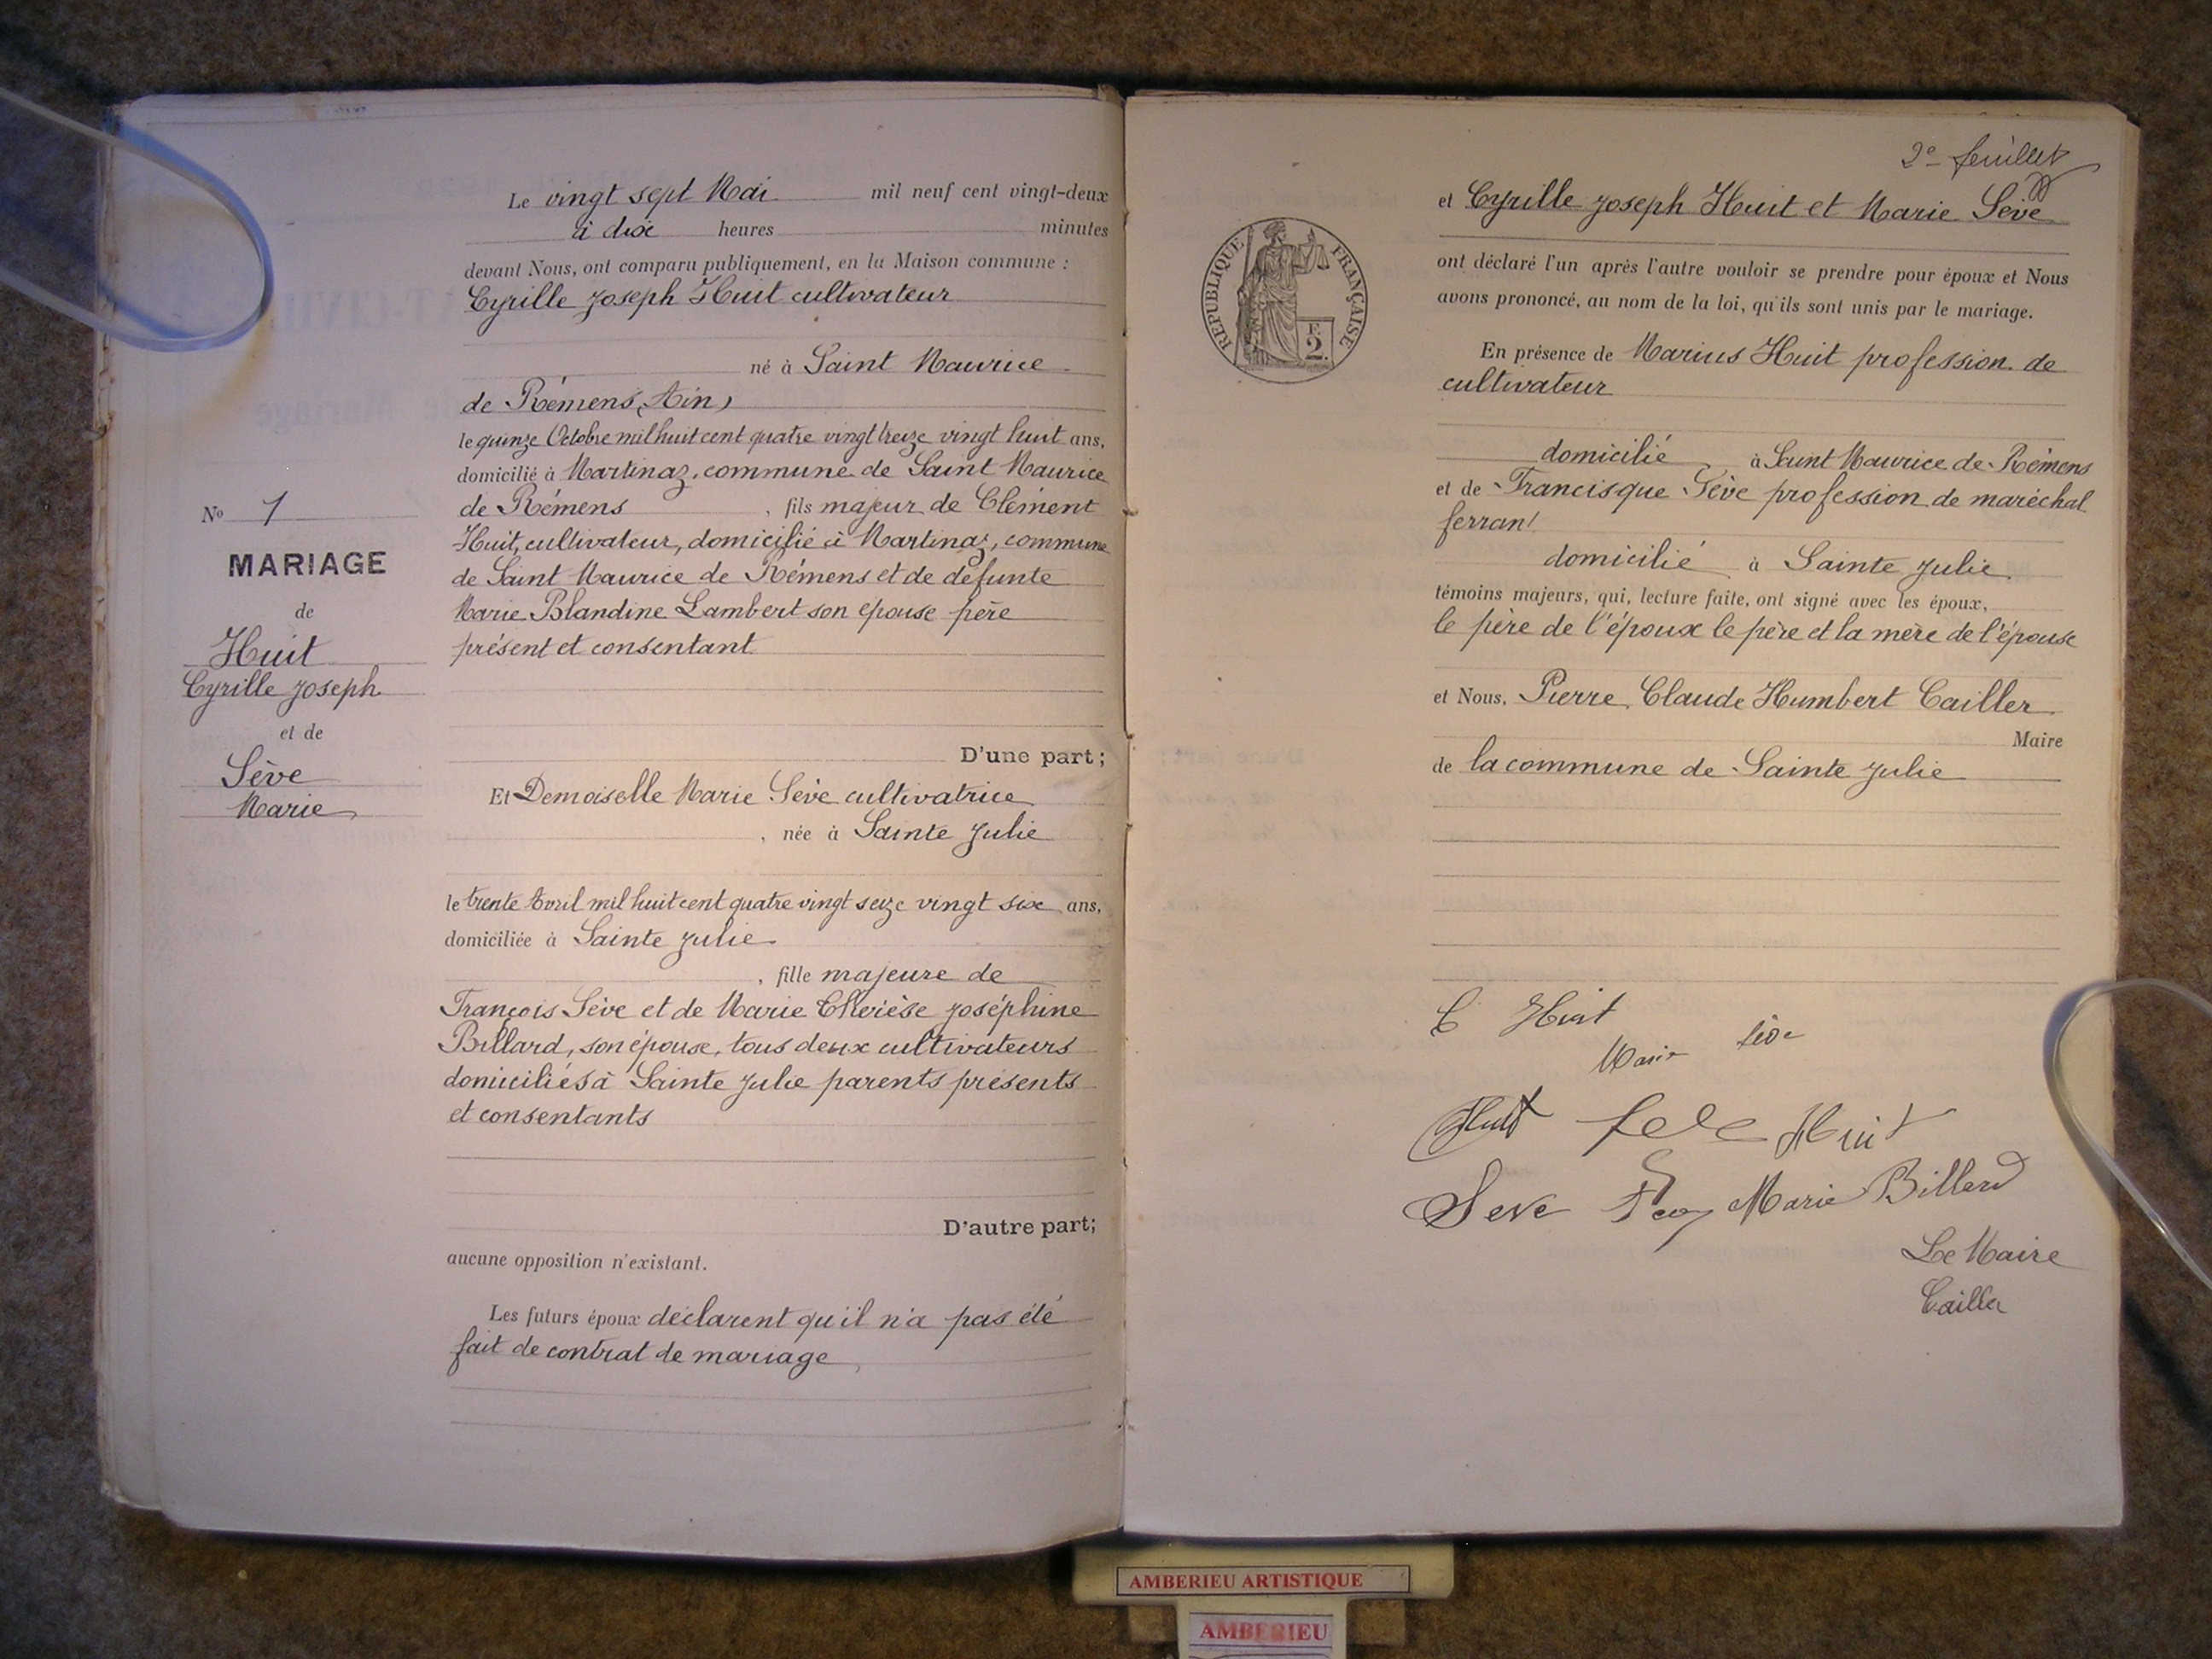 Le vingt sept Mai mil neuf cent vingt-deux
à dix heures minutes
devant Nous, ont comparu publiquement, en la Maison commune :
Cyrille Joseph Huit cultivateur
né à Saint Maurice
de Rémens (Ain)
le quinze Octobre mil huit cent quatre vingt treize vingt huit ans,
domicilié à Martinaz, commune de Saint Maurice
de Rémens, fils majeur de Clément
Huit, cultivateur, domicilié à Martinaz, commune
de Saint Maurice de Rémens et de défunte
Marie Blandine Lambert son épouse père
présent et consentant
D'une part;
Et Demoiselle Marie Sève cultivatrice
, née à Sainte Julie
le trente Avril mil huit cent quatre vingt seize vingt six ans,
domiciliée à Sainte Julie
, fille majeure de
François Sève et de Marie Thérèse Joséphine
Billard, son épouse, tous deux cultivateurs
domiciliés à Sainte Julie parents présents
et consentants
D'autre part;
aucune opposition n'existant.
Les futurs époux déclarent qu'il n'a pas été
fait de contrat de mariage
No 1
MARIAGE
de
Huit
Cyrille Joseph
et de
Sève
Marie
2e feuillet
REPUBLIQUE FRANÇAISE
F.
2.
et Cyrille Joseph Huit et Marie Sève
ont déclaré l'un après l'autre vouloir se prendre pour époux et Nous
avons prononcé, au nom de la loi, qu'ils sont unis par le mariage.
En présence de Marius Huit profession de
cultivateur
domicilié à Saint Maurice de Rémens
et de Francisque Sève profession de maréchal
ferrant
domicilié à Sainte Julie
témoins majeurs, qui, lecture faite, ont signé avec les époux,
le père de l'époux le père et la mère de l'épouse
et Nous, Pierre Claude Humbert Cailler
Maire
de la commune de Sainte Julie
C Huit
Marie Sève
Huit Huit
Seve Marie Billard
Le Maire
Cailler
AMBERIEU ARTISTIQUE
AMBERIEU